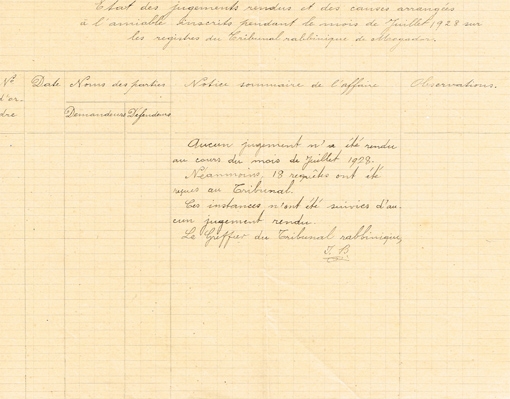 Etat des jugements rendus et des causes arrangées
à l'amiable inscrits pendant le mois de Juillet 1928 sur
les registres du Tribunal rabbinique de Mogador.
Nº d'ordre
Date
Noms des parties
Notice sommaire de l'affaire
Observations.
Demandeurs
Défendeurs
Aucun jugement n'a été rendu
au cours du mois de Juillet 1928.
Néanmoins, 18 requêtes ont été
reçues au Tribunal.
Ces instances n'ont été suivies d'au-
cun jugement rendu.
Le Greffier du Tribunal rabbinique,